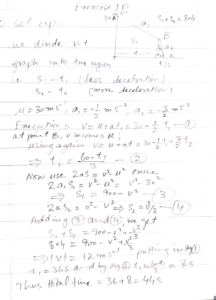 Exercise 1D
set up:
S₁+S₂=804
we divide v-t
graph into two region
i.e. S₁-t₁ (less deceleration)
S₂-t₂ (more deceleration)
u=30ms⁻¹, a₁=-1/2 ms⁻², a₂=-3/2 ms⁻²
Execution: v=u+at₁=30-1/2 t₁ ①
at point B, v becomes u,
using again v=u+at=30-
⇒ t₂ = 60-t₁/3 ②
Now use 2as=v²-u² twice,
2a₁S₁=v²-u²=v²-30²
⇒ S₁=900-v² ③
2a₂S₂=0²-v² ⇒ S₂=v²/3 ④
Adding ③ and ④ we get
S₁+S₂=900-v²+v²/3
804=900-v²+v²/3
⇒ v=12 ms⁻¹ putting in eq①
t₁=36s and by eq② t₂ = 8s
Thus total time=36+8=44s